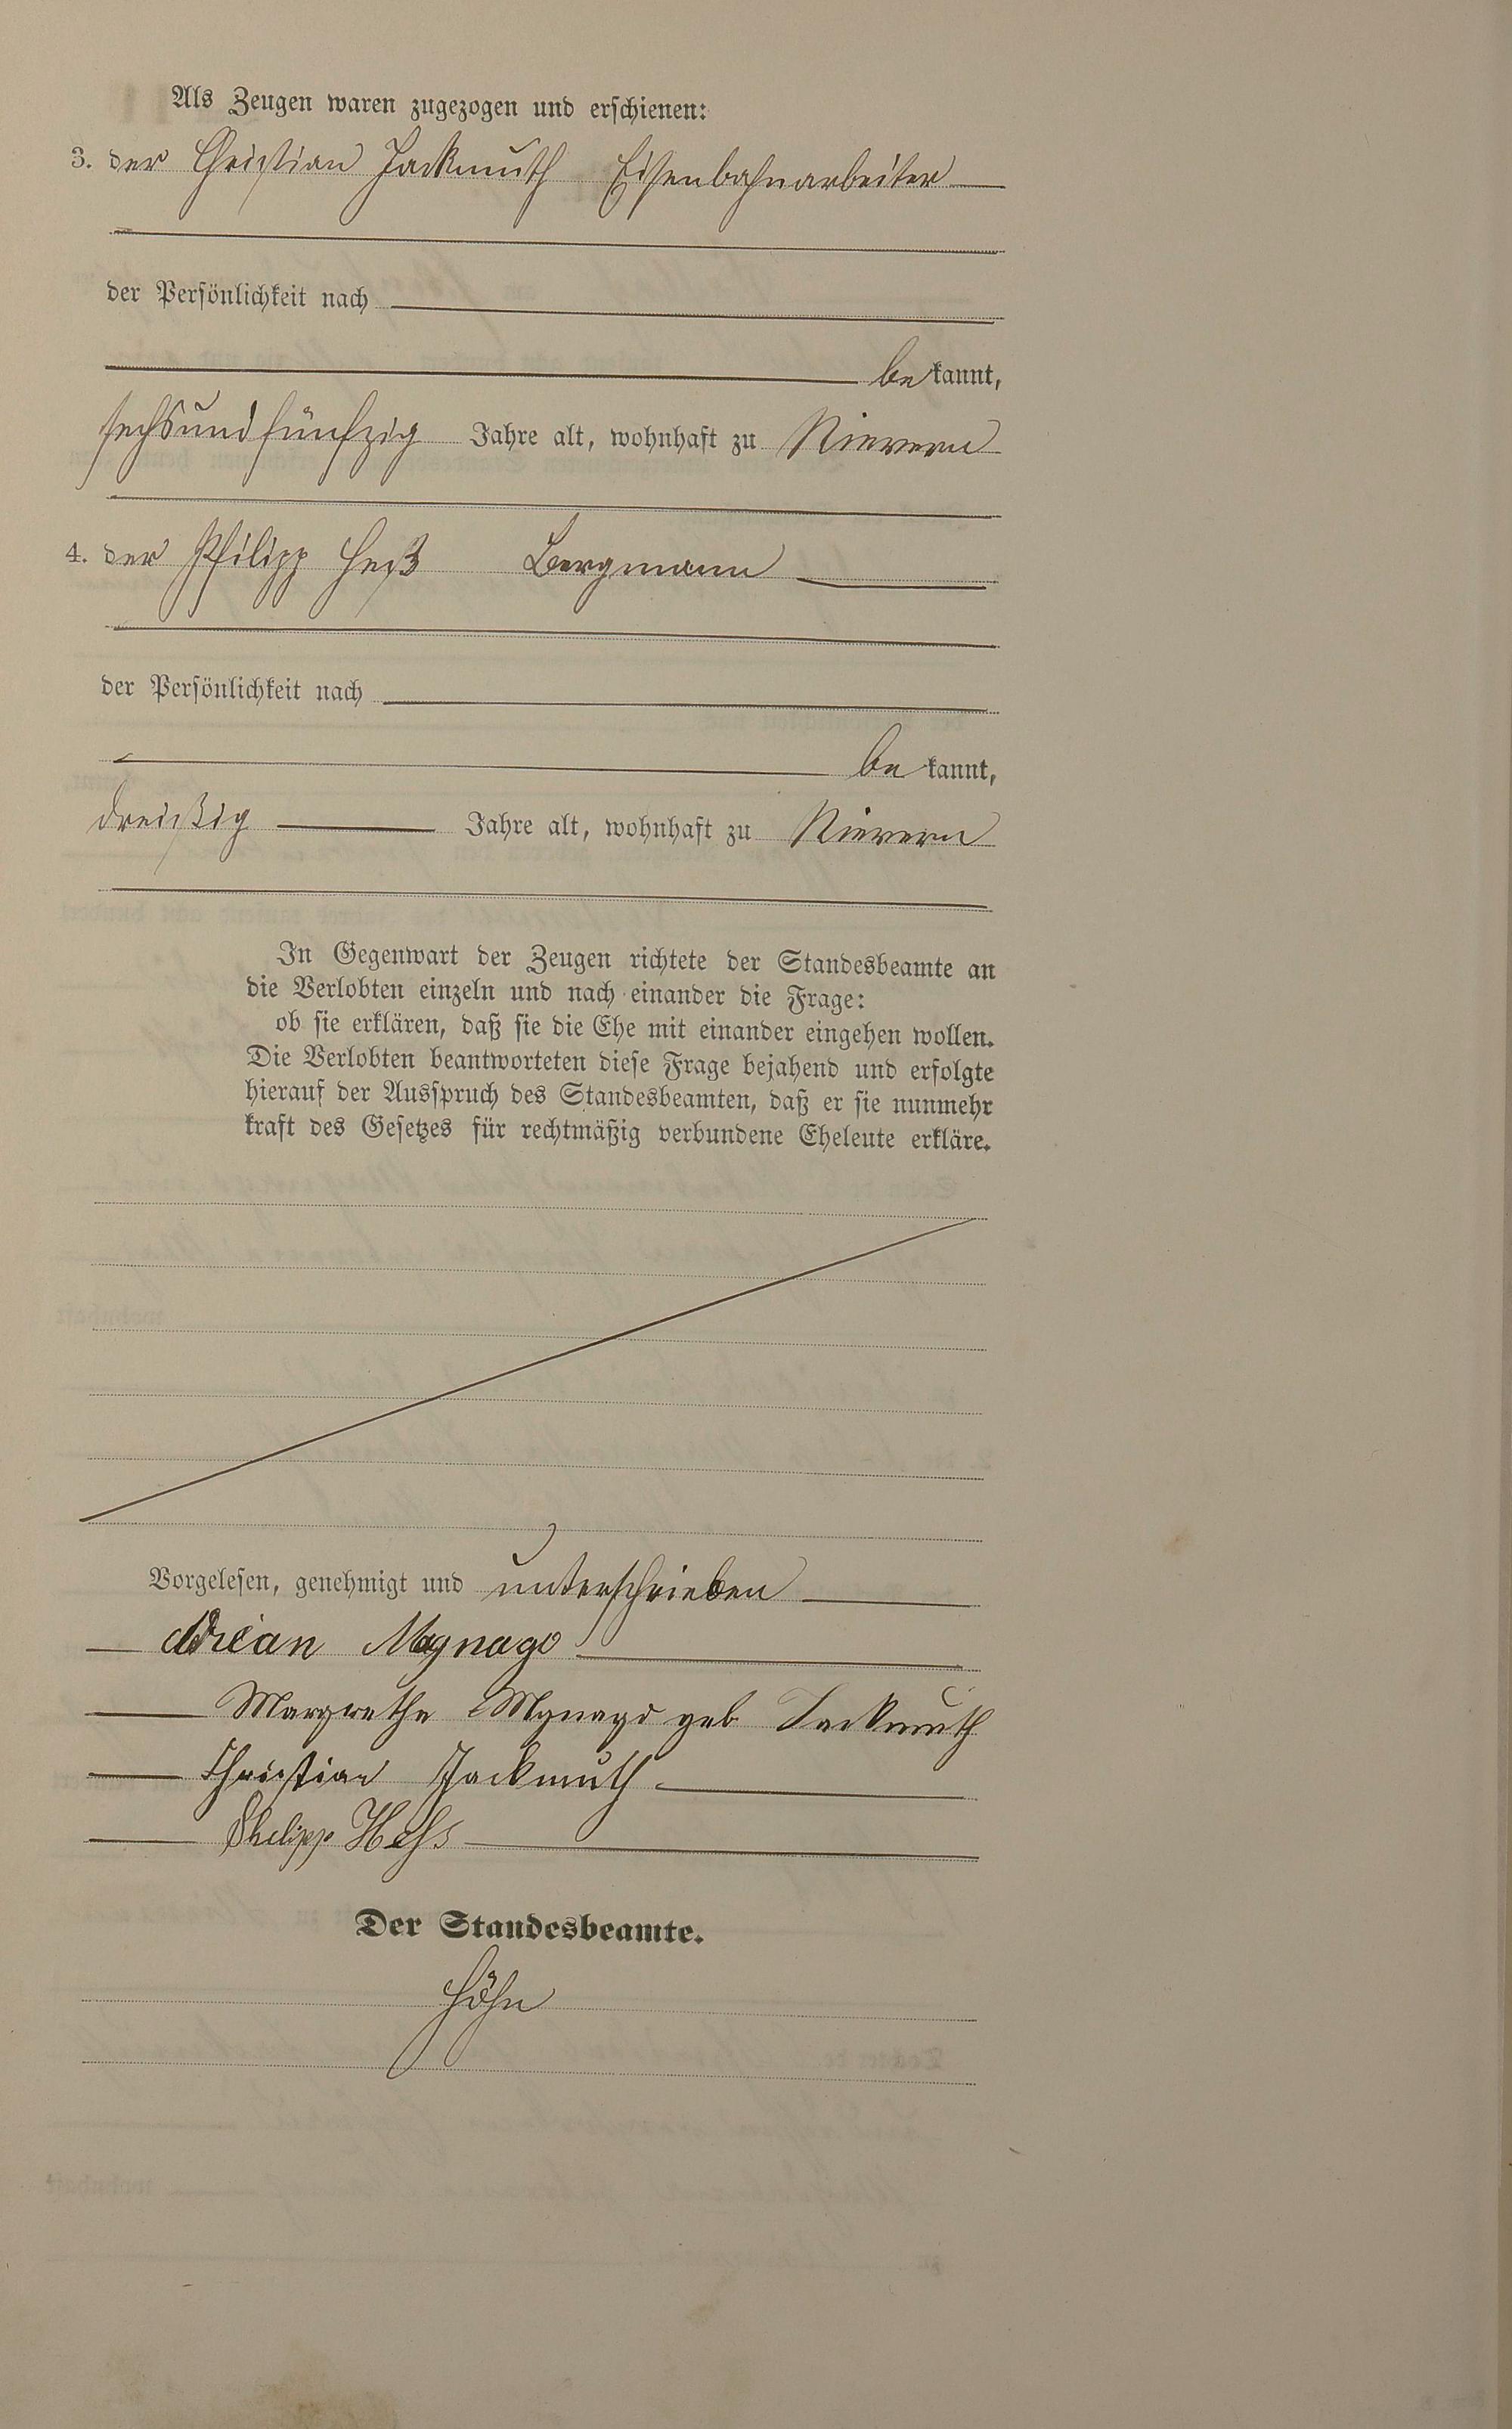 Als Zeugen waren zugezogen und erschienen:
3. der Christian Jackmuth Eisenbahnarbeiter
der Persönlichkeit nach
bekannt,
sechsundfünfzig Jahre alt, wohnhaft zu Nievern
4. der Philipp Heß Bergmann
der Persönlichkeit nach
bekannt,
dreißig Jahre alt, wohnhaft zu Nievern
In Gegenwart der Zeugen richtete der Standesbeamte an
die Verlobten einzeln und nach einander die Frage:
ob sie erklären, daß sie die Ehe mit einander eingehen wollen.
Die Verlobten beantworteten diese Frage bejahend und erfolgte
hierauf der Ausspruch des Standesbeamten, daß er sie nunmehr
kraft des Gesetzes für rechtmäßig verbundene Eheleute erkläre.
Vorgelesen, genehmigt und unterschrieben
Adrian Magnago
Margrethe Mgnago geb Jackmuth
Christian Jackmuth
Philipp Hess
Der Standesbeamte.
Höhn